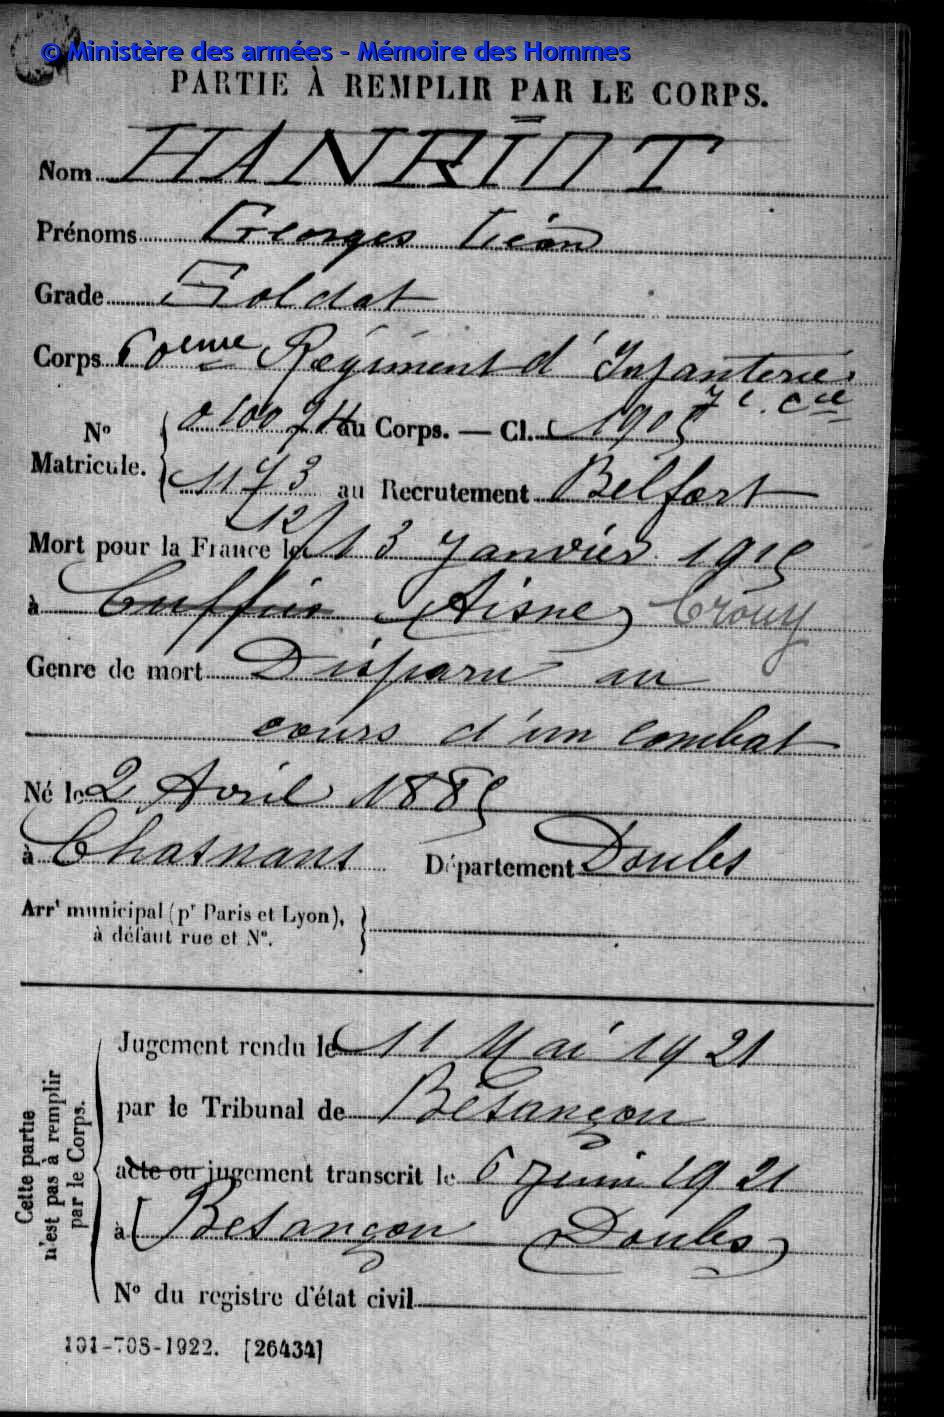 © Ministère des armées - Mémoire des Hommes
PARTIE À REMPLIR PAR LE CORPS.
Nom HANRIOT
Prénoms Georges Léon
Grade Soldat
Corps 60eme Régiment d'Infanterie
7e. Cie
N° Matricule. 010074 au Corps. — Cl. 1905
1173 au Recrutement Belfort
12/
Mort pour la France le 13 Janvier 1915
à Cuffies (Aisne) Crouy
Genre de mort Disparu au
cours d'un combat
Né le 2 Avril 1885
à Chasnans Département Doubs
Arrt municipal (pr Paris et Lyon),
à défaut rue et N°.
Cette partie
n'est pas à remplir
par le Corps.
Jugement rendu le 11 Mai 1921
par le Tribunal de Besançon
acte ou jugement transcrit le 6 Juin 1921
à Besançon (Doubs)
N° du registre d'état civil
101-708-1922. [26434]